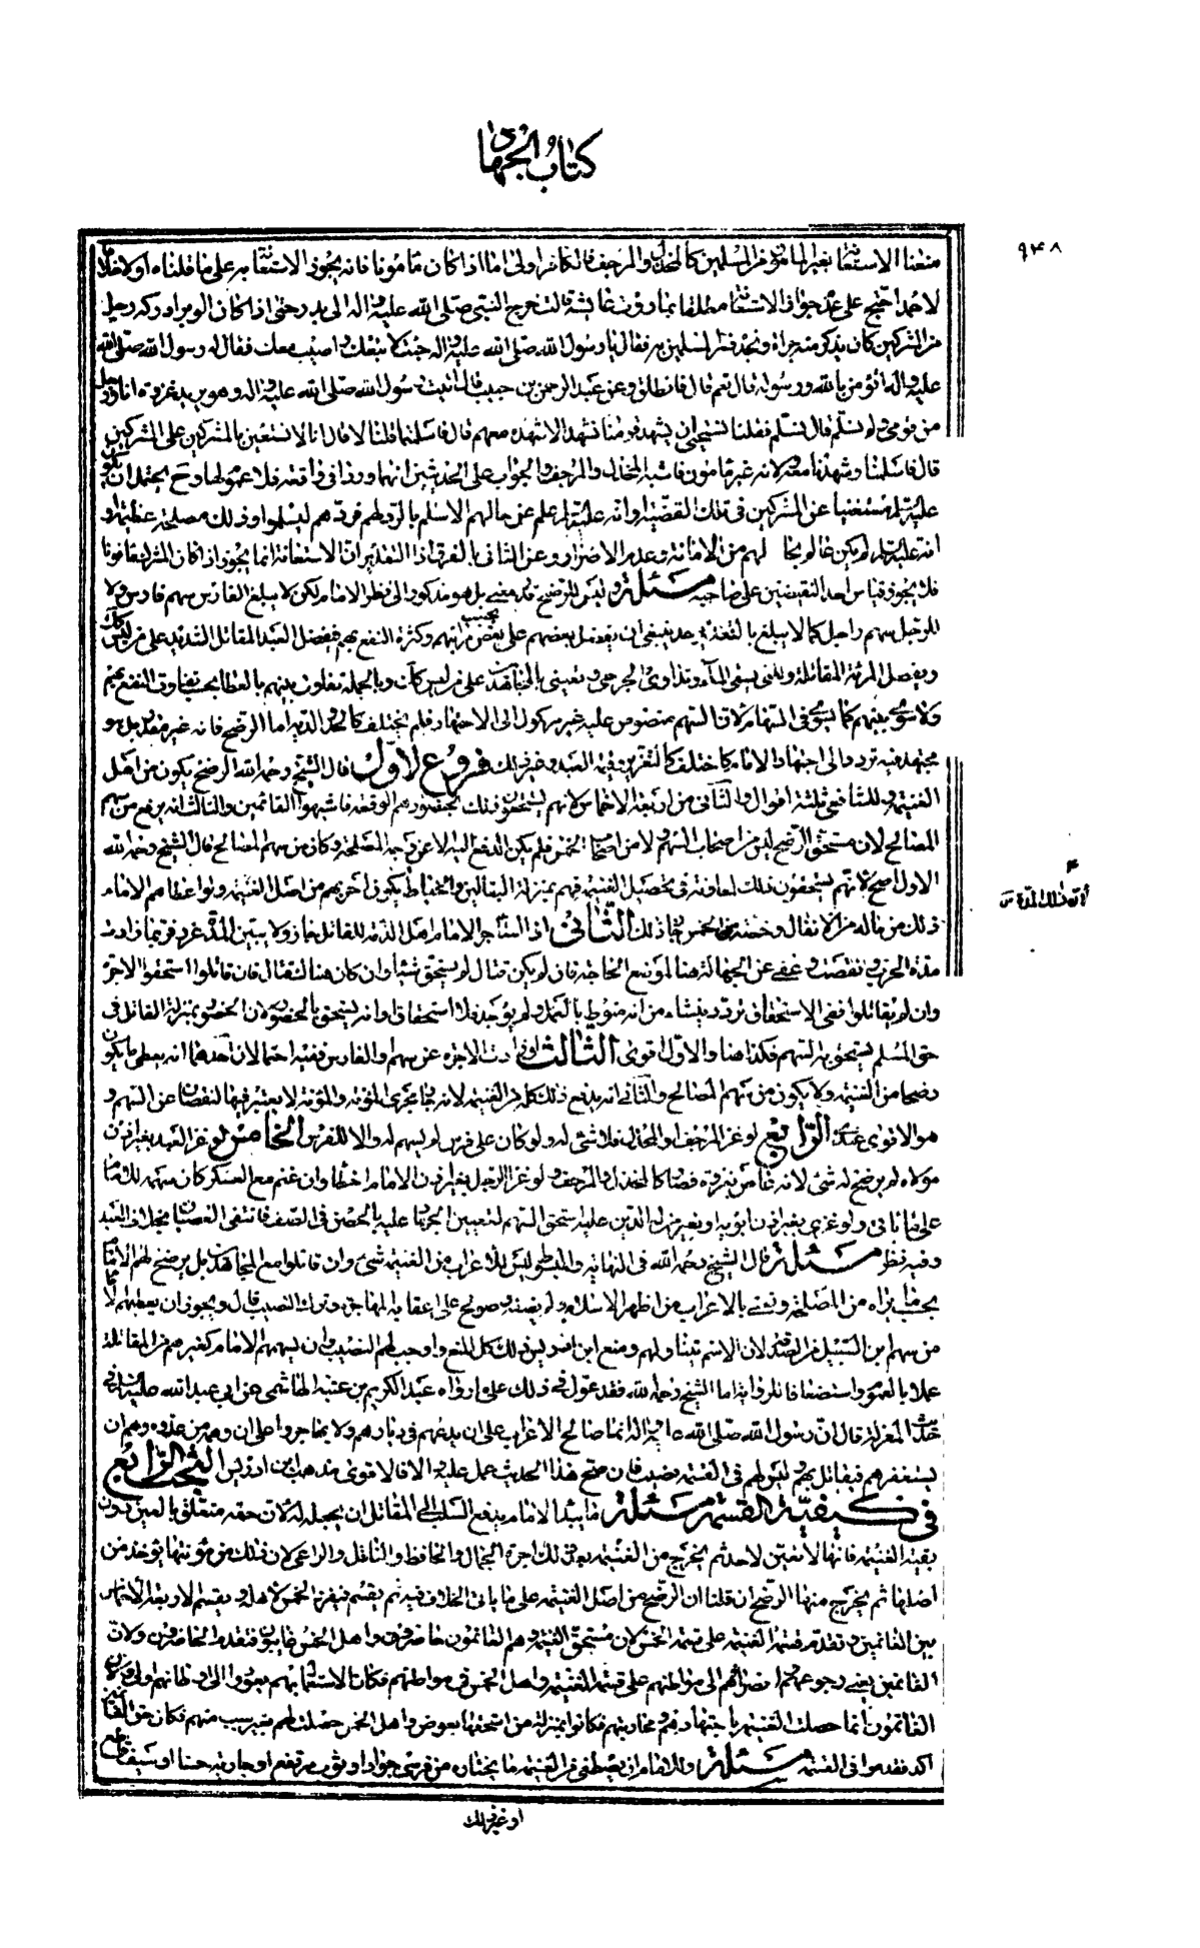 كتاب الجهاد
٩٤٨
منعنا الاستعانة بغير المأمون من المسلمين كالمخذل والمرجف فالكافر اولى اما اذا كان مأمونا فانه يجوز الاستعانة به على ما قلناه اولا خلافا
لاحمد احتج على عدم جواز الاستعانة مطلقا بما روت عايشة قالت خرج النبي صلى الله عليه واله الى بدر حتى اذا كان الوبر ادركه رجل
من المشركين كان يذكر منه جراة ونجدة فسر المسلمين به فقال يا رسول الله صلى الله عليه واله جئت لاتبعك واصيب معك فقال له رسول الله صلى الله
عليه واله اتؤمن بالله ورسوله قال نعم قال فانطلق وعن عبد الرحمن بن حبيب قال اتيت رسول الله صلى الله عليه واله وهو يريد غزوة انا ورجل
من قومي ولم نسلم قال نسلم فقلنا نستحيي ان يشهد قومنا مشهدا لا نشهده معهم قال فاسلمتما قلنا لا قال انا لا نستعين بالمشركين على المشركين
قال فاسلمنا وشهدنا معه ولانه غير مأمون فاشبه المخذل والمرجف والجواب على الحديثين انهما وردا في واقعة فلا عموم لها وح يحتمل ان يكون
عليه السلم مستغنيا عن المشركين في تلك القضية او انه عليه السلم اعلم عن حالهم الاسلم بالرد لهم فردهم ليسلموا وذلك مصلحة عظيمة او
انه عليه السلم لم يكن عالما بحالهم من الامانة وعدم الاضرار وعن الثاني بالفرق اذ التقدير ان الاستعانة انما يجوز اذا كان المشرك مأمونا
فلا يجوز قياس احد النقيضين على صاحبه مسئلة وليس للرضخ قدر معين بل هو مذكور الى نظر الامام لكن لا يبلغ الفارس سهم فارس ولا
للرجل سهم راجل كما لا يبلغ بالتعزير حد ينبغي ان يفضل بعضهم على بعض بحسب مراتبهم وكثرة النفع بهم فيفضل العبد المقاتل الشديد على من ليس كك
ويفضل المرئة المقاتلة والتي يسقي الماء وتداوي الجرحى وتعيني بالمجاهدين على من ليس كك وبالجملة تفاوت بينهم بالعطا بحسب تفاوت النفع بهم
ولا يسوي بينهم كما يسوي في السهام لان السهم منصوص عليه غير موكول الى الاجتهاد فلم يختلف كالحد والدية اما الرضخ فانه غير مقدر بل هو
مجتهد فيه تردد الى اجتهاد الامام فاختلف كالتعزير وقيمة العبد وغير ذلك فروع الاول قال الشيخ رحمه الله الرضخ يكون من اصل
الغنيمة وللشافعي ثلثة اقوال والثاني من اربعة الاخماس لانهم يستحقون ذلك بحضورهم الوقعة فاشبهوا الغانمين والثالث انه يرفع من سهم
المصالح لان مستحق الرضخ ليس من اصحاب السهم ولا من اصحاب الخمس فلم يكن الدفع اليه الا عن وجه المصلحة وكان من سهم المصالح قال الشيخ رحمه الله
الاول اصح لانهم يستحقون ذلك لمعاونة في تحصيل الغنيمة فهم بمنزلة البقالين والحفاظ يكون اجرتهم من اصل الغنيمة ولو اعطاهم الامام
ذلك من ماله من الانفال وحصته من الخمس جاز ذلك الثاني اذا استأجر الامام اهل الذمة للقتال جاز ولا يتبين المدة
مدة الحرب او نقصت وعفي عن الجهالة هنا لموضع الحاجة فان لم يكن قتال لم يستحق شيئا وان كان هناك قتال فان قاتلوا استحقوا الاجرة
وان لم يقاتلوا ففي الاستحقاق تردد ينشاء من انه منوط بالعمل ولم يوجد فلا استحقاق وانه يستحق بالحضور لان الحضور بمنزلة القاتل في
حق المسلم يستحق به السهم فكذا هنا والاول اقوى الثالث لو زادت الاجرة عن سهم الراجل والفارس ففيه احتمالان احدهما انه يعطى ما يكون
رضخا من الغنيمة ولا يكون من سهم المصالح والثاني انه يدفع ذلك كله من الغنيمة لانه يجري مجرى المؤنة والمؤنة لا يعتبر فيها النقصان عن السهم و
هو الاقوى عندي الرابع لو غزا المرجف او المخذل فلا شئ له ولو كان على فرس لم يسهم له ولا للفرس الخامس لو غزا العبد بغير اذن
مولاه لم يرضخ له شئ لانه عاص بغزوه فصار كالمخذل والمرجف ولو غزا الرجل بغير اذن الامام اخطأ وان غنم مع العسكر كان سهمه للامام
على ما يأتي ولو غزى بغير اذن ابويه او بغير اذن من له الدين عليه استحق السهم لتعيين الجهاد عليه بالحضور في الصف فانتفى العصيان بخلاف العبد
وفيه نظر مسئلة قال الشيخ رحمه الله في النهاية والمبسوط ليس للاعراب من الغنيمة شئ وان قاتلوا مع المجاهدين بل يرضخ لهم الامام
بحسب ما يراه من المصلحة ونعني بالاعراب من اظهر الاسلام ولم يصفه وصولح على اعفائه المهاجرة وترك النصيب قال ويجوز ان يعطيهم الامام
من سهم ابن السبيل من الصدقة لان الاسم يتناولهم ومنع ابن ادريس ذلك كل المنع واوجب لهم النصيب وان يسهمهم الامام كغيرهم من المقاتلة
عملا بالعموم واستضعافا للرواية اما الشيخ رحمه الله فقد عول في ذلك على ما رواه عبد الكريم بن عتبة الهاشمي عن ابي عبد الله عليه السلم في
حديث المعتزلة قال ان رسول الله صلى الله عليه واله انما صالح الاعراب على ان يدعهم في ديارهم ولا يهاجروا على ان دهم من عدوه دهم ان
يستفزهم فيقاتل بهم وليس لهم في الغنيمة نصيب فان صح هذا الحديث عمل عليه والا فالاقوى مذهب ابن ادريس البحث الرابع
في كيفية القسمة مسئلة ما يبدأ الامام يدفع السلب الى المقاتل ان يجعله له لان حقه متعلق بالعين دون
بقية الغنيمة فانها لا تعين لاحد ثم يخرج من الغنيمة بعد ذلك اجرة الحمال والحافظ والناقل والراعي لان ذلك من مؤنتها يؤخذ من
اصلها ثم يخرج منها الرضخ ان قلنا ان الرضخ من اصل الغنيمة على ما يأتي الخلاف فيه ثم يقسم فيفرز الخمس لاهله ويقسم الاربعة الاخماس
بين الغانمين ويقدم قسمة الغنيمة على قسمة الخمس لان مستحق الغنيمة وهم الغانمون حاضرون واهل الخمس غايبون فتقدم الحاضرون ولان
الغانمين يقف رجوعهم وانصرافهم الى مواطنهم على قسمة الغنيمة واهل الخمس في مواطنهم فكان الاشتغال بهم ليعودوا الى اوطانهم اولى ولان
الغانمون انما حصلت الغنيمة باجتهادهم ومحاربتهم فكانوا بمنزلة من استحقها بعوض واهل الخمس حصلت لهم بغير سبب منهم فكان حق الغانمين
اكد فقدموا في القسمة مسئلة وللامام ان يصطفي من الغنيمة ما يختاره من فرس جواد او ثوب مرتفع او جارية حسنا او سيف قاطع
او غير ذلك